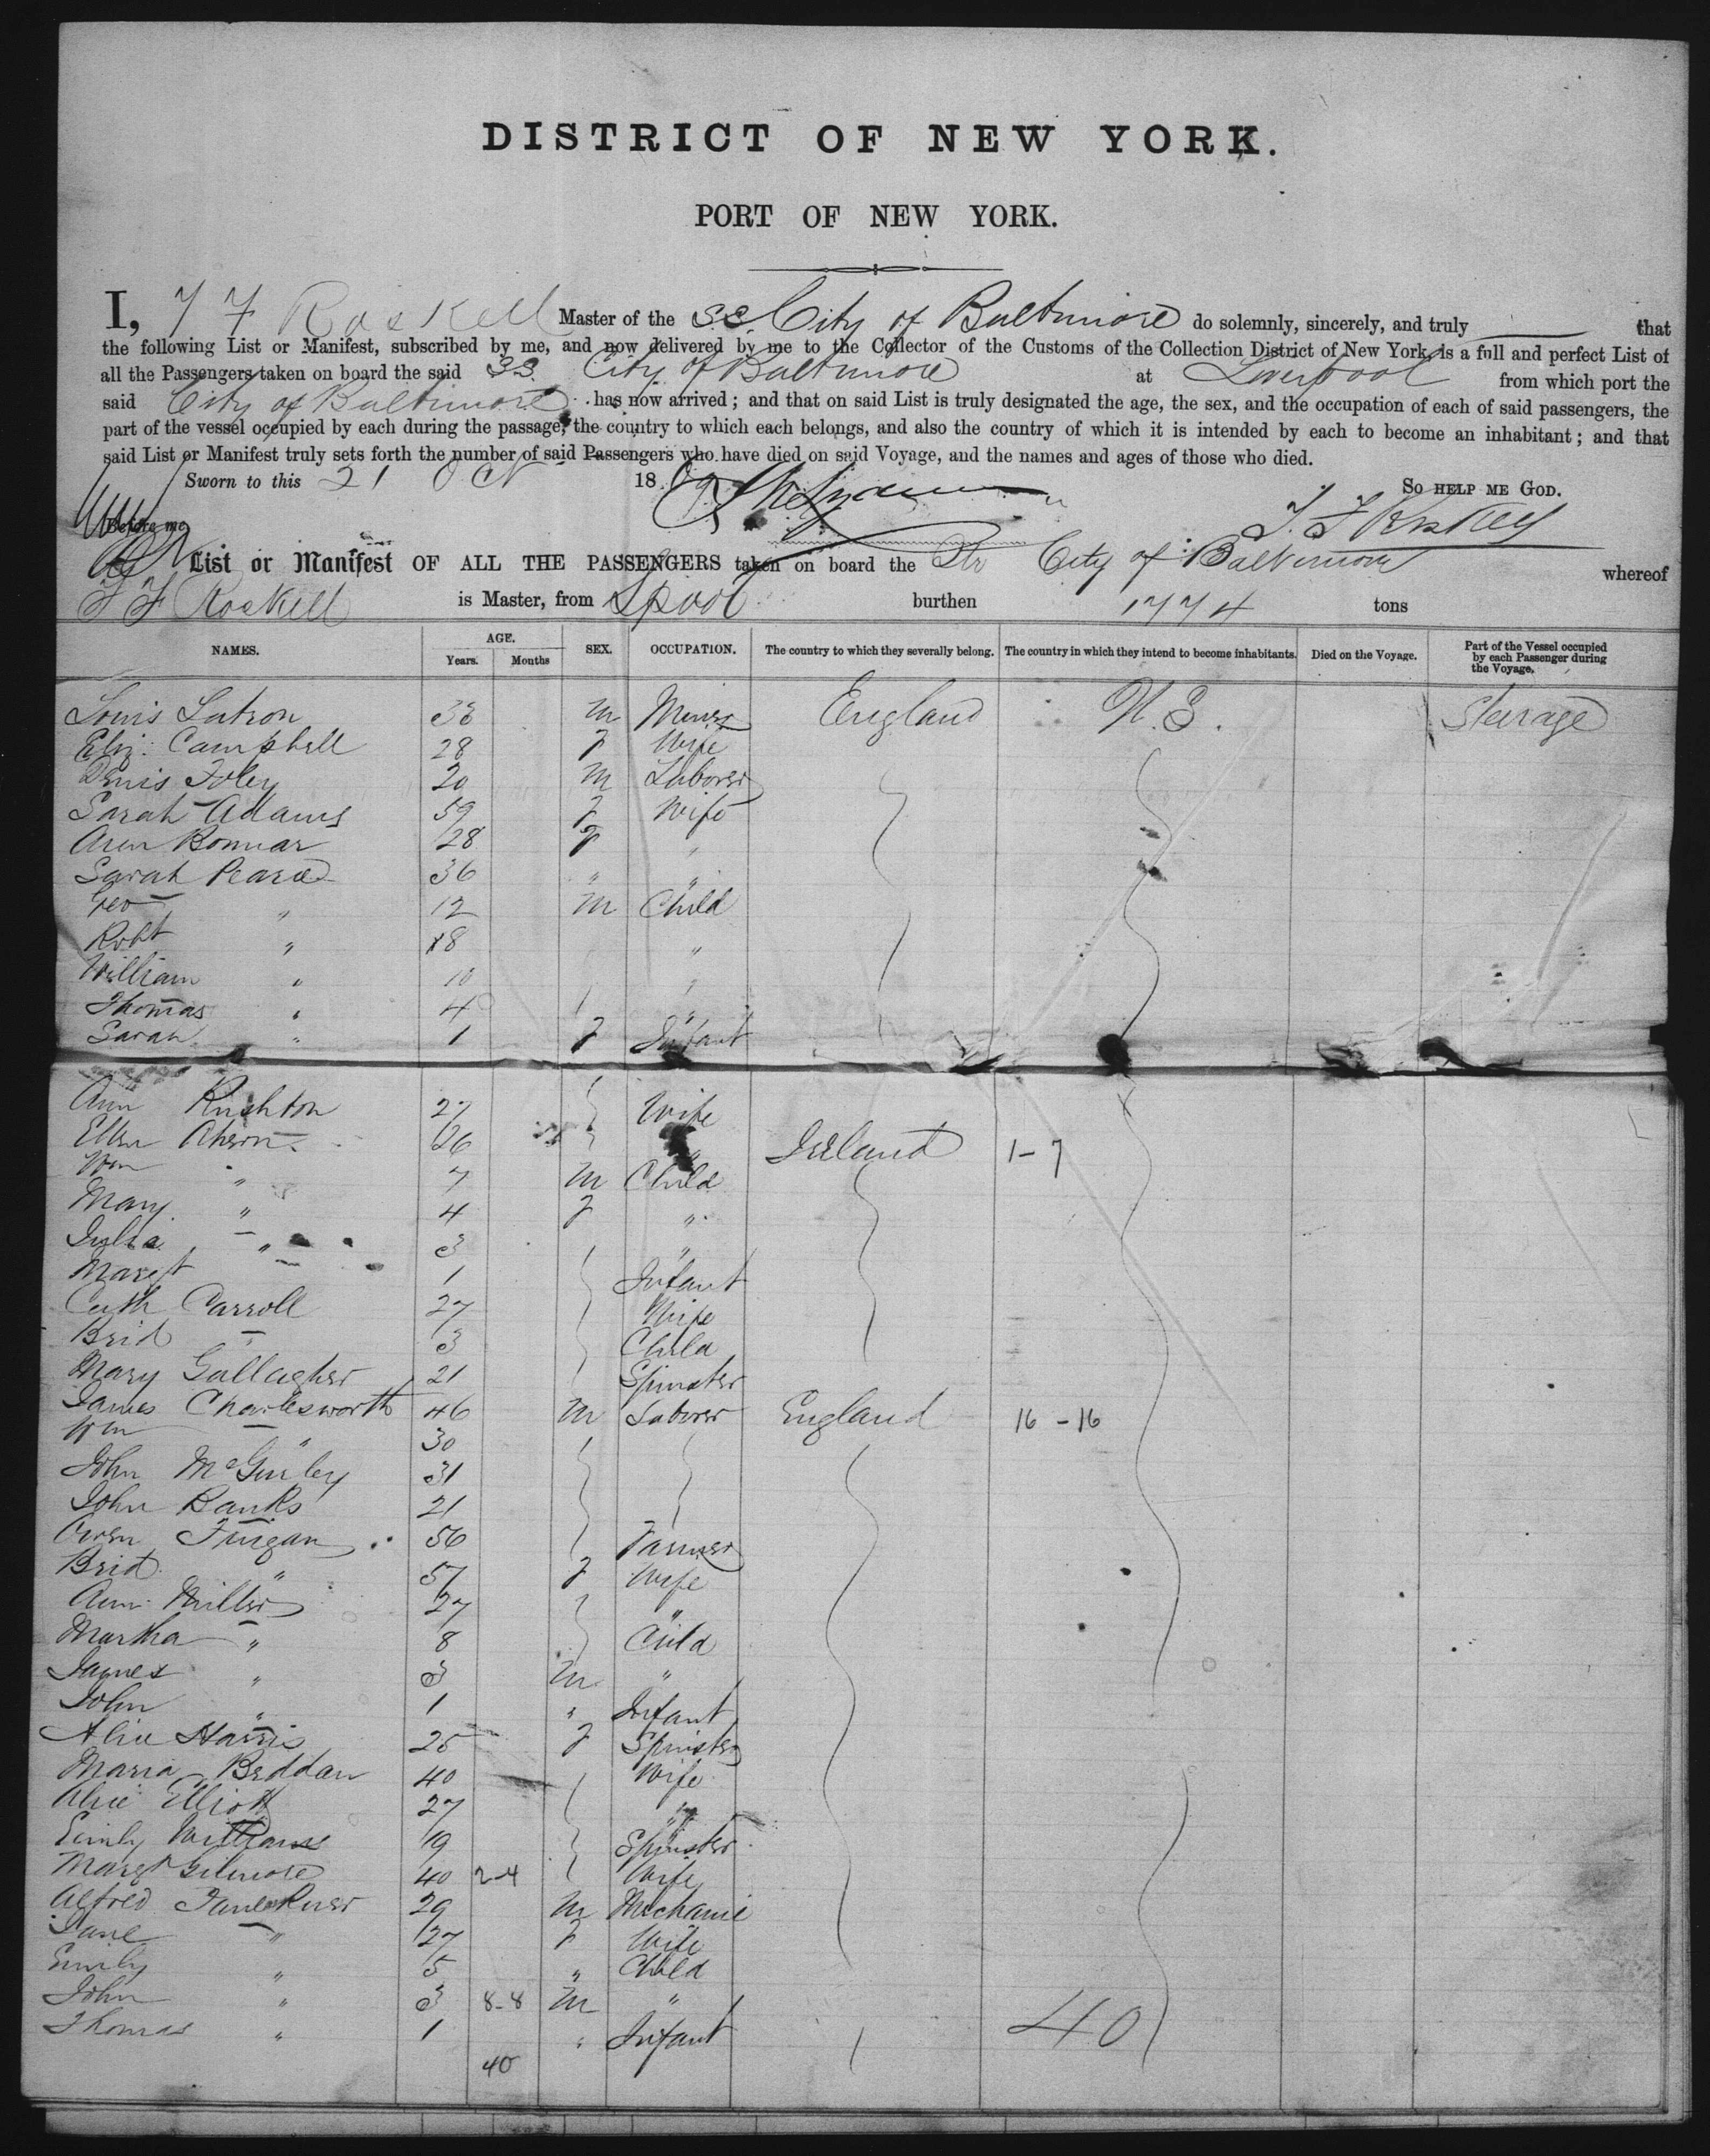 DISTRICT OF NEW YORK.
PORT OF NEW YORK.
I, T F Roskell Master of the S.S. City of Baltimore do solemnly, sincerely, and truly that
the following List or Manifest, subscribed by me, and now delivered by me to the Collector of the Customs of the Collection District of New York, is a full and perfect List of
all the Passengers taken on board the said SS. City of Baltimore at Liverpool from which port the
said City of Baltimore has now arrived; and that on said List is truly designated the age, the sex, and the occupation of each of said passengers, the
part of the vessel occupied by each during the passage, the country to which each belongs, and also the country of which it is intended by each to become an inhabitant; and that
said List or Manifest truly sets forth the number of said Passengers who have died on said Voyage, and the names and ages of those who died.
Sworn to this 21 Oct 18 69 So HELP ME GOD.
Before me T. F Roskell
List or Manifest OF ALL THE PASSENGERS taken on board the Str City of Baltimore whereof
T F Roskell is Master, from Lpool burthen 1774 tons
NAMES. AGE. Years. Months SEX. OCCUPATION. The country to which they severally belong. The country in which they intend to become inhabitants. Died on the Voyage. Part of the Vessel occupied by each Passenger during the Voyage.
Louis 38 m Miner England U.S. Steerage
Eliz: Campbell 28 f Wife
Denis Foley 20 m Laborer
Sarah Adams 59 f Wife
Ann Bonnar 28 f "
Sarah Pearce 36 " "
Geo " 12 m Child
Robt " 8 "
William " 10 "
Thomas " 4 "
Sarah " 1 f Infant
Ann Rushton 27 Wife
Ellen Ahern 26 " Ireland 1-7
Wm " 7 m Child
Mary " 4 f "
Julia " 3 "
Margt 1 Infant
Cath Carroll 27 Wife
Brid " 3 Child
Mary Gallagher 21 Spinster
James Charlesworth 46 m Laborer England 16-16
Wm " 30
John McGinley 31
John Banks 21
Owen Finigan 56 Farmer
Brid " 57 f Wife
Ann Miller 27 "
Martha " 8 Child
James " 3 m "
John " 1 " Infant
Alice Harris 25 f Spinster
Maria Beddan 40 Wife
Alice Elliott 27 "
Emily Williams 19 Spinster
Margt Gilmore 40 2-4 Wife
Alfred 29 m Mechanic
Jane " 27 f Wife
Emily " 5 " Child
John " 3 8-8 m "
Thomas " 1 " Infant 40
40